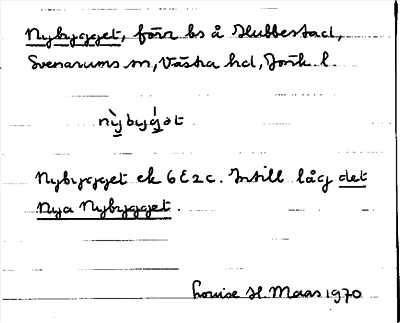 Nybygget, förr bs å Hubbestad,
Svenarums sn, Västra hd, Jönk. l.
nỳbyǵət
Nybygget ek 6E2c. Intill låg det
Nya Nybygget.
Louise H. Maas 1970